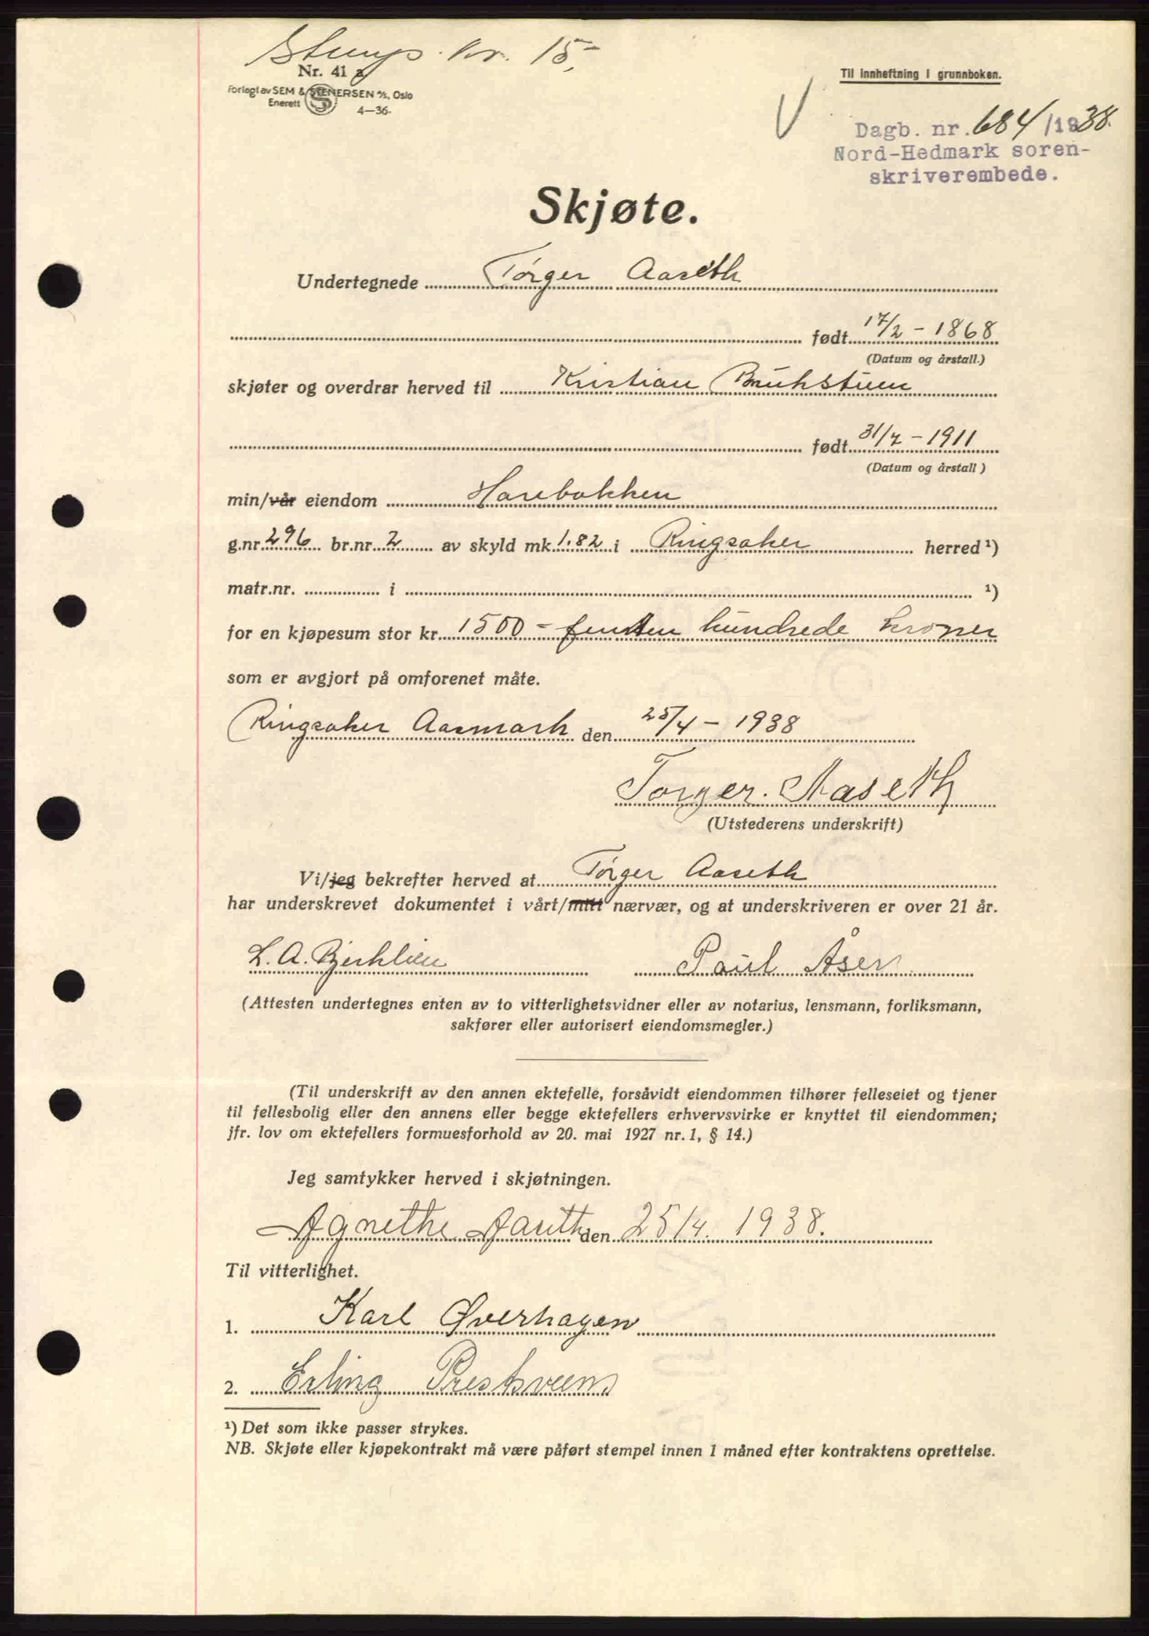 Stemp. kr. 15,-
Nr. 41 a
Forlagt av SEM & STENERSEN A/S, Oslo
Enerett 4—36.
Til innheftning i grunnboken.
V
Dagb. nr. 684/1938.
Nord-Hedmark soren-
skriverembede.
Skjøte.
Undertegnede Torger Aaseth
født 17/2 - 1868
(Datum og årstall.)
skjøter og overdrar herved til Kristian Bruhstuen
født 31/7 - 1911
(Datum og årstall)
min/vår eiendom Harebakken
g.nr. 296 br.nr. 2 av skyld mk. 1.82 i Ringsaker herred ¹)
matr.nr. i ¹)
for en kjøpesum stor kr. 1500 - femten hundrede kroner
som er avgjort på omforenet måte.
Ringsaker Aasmark den 25/4 - 1938
Torger. Aaseth
(Utstederens underskrift)
Vi/jeg bekrefter herved at Torger Aaseth
har underskrevet dokumentet i vårt/mitt nærvær, og at underskriveren er over 21 år.
L. A. Bjerklien Paul Åsen
(Attesten undertegnes enten av to vitterlighetsvidner eller av notarius, lensmann, forliksmann,
sakfører eller autorisert eiendomsmegler.)
(Til underskrift av den annen ektefelle, forsåvidt eiendommen tilhører felleseiet og tjener
til fellesbolig eller den annens eller begge ektefellers erhvervsvirke er knyttet til eiendommen;
jfr. lov om ektefellers formuesforhold av 20. mai 1927 nr. 1, § 14.)
Jeg samtykker herved i skjøtningen.
Agnethe Aaseth den 25/4. 1938.
Til vitterlighet.
1. Karl Øverhagen
2. Erling Prestsveen
¹) Det som ikke passer strykes.
NB. Skjøte eller kjøpekontrakt må være påført stempel innen 1 måned efter kontraktens oprettelse.